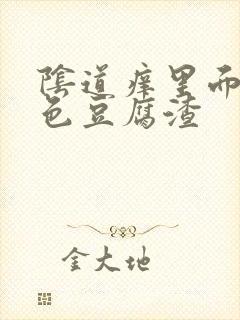 陰道痒里而
色豆腐渣
金大地